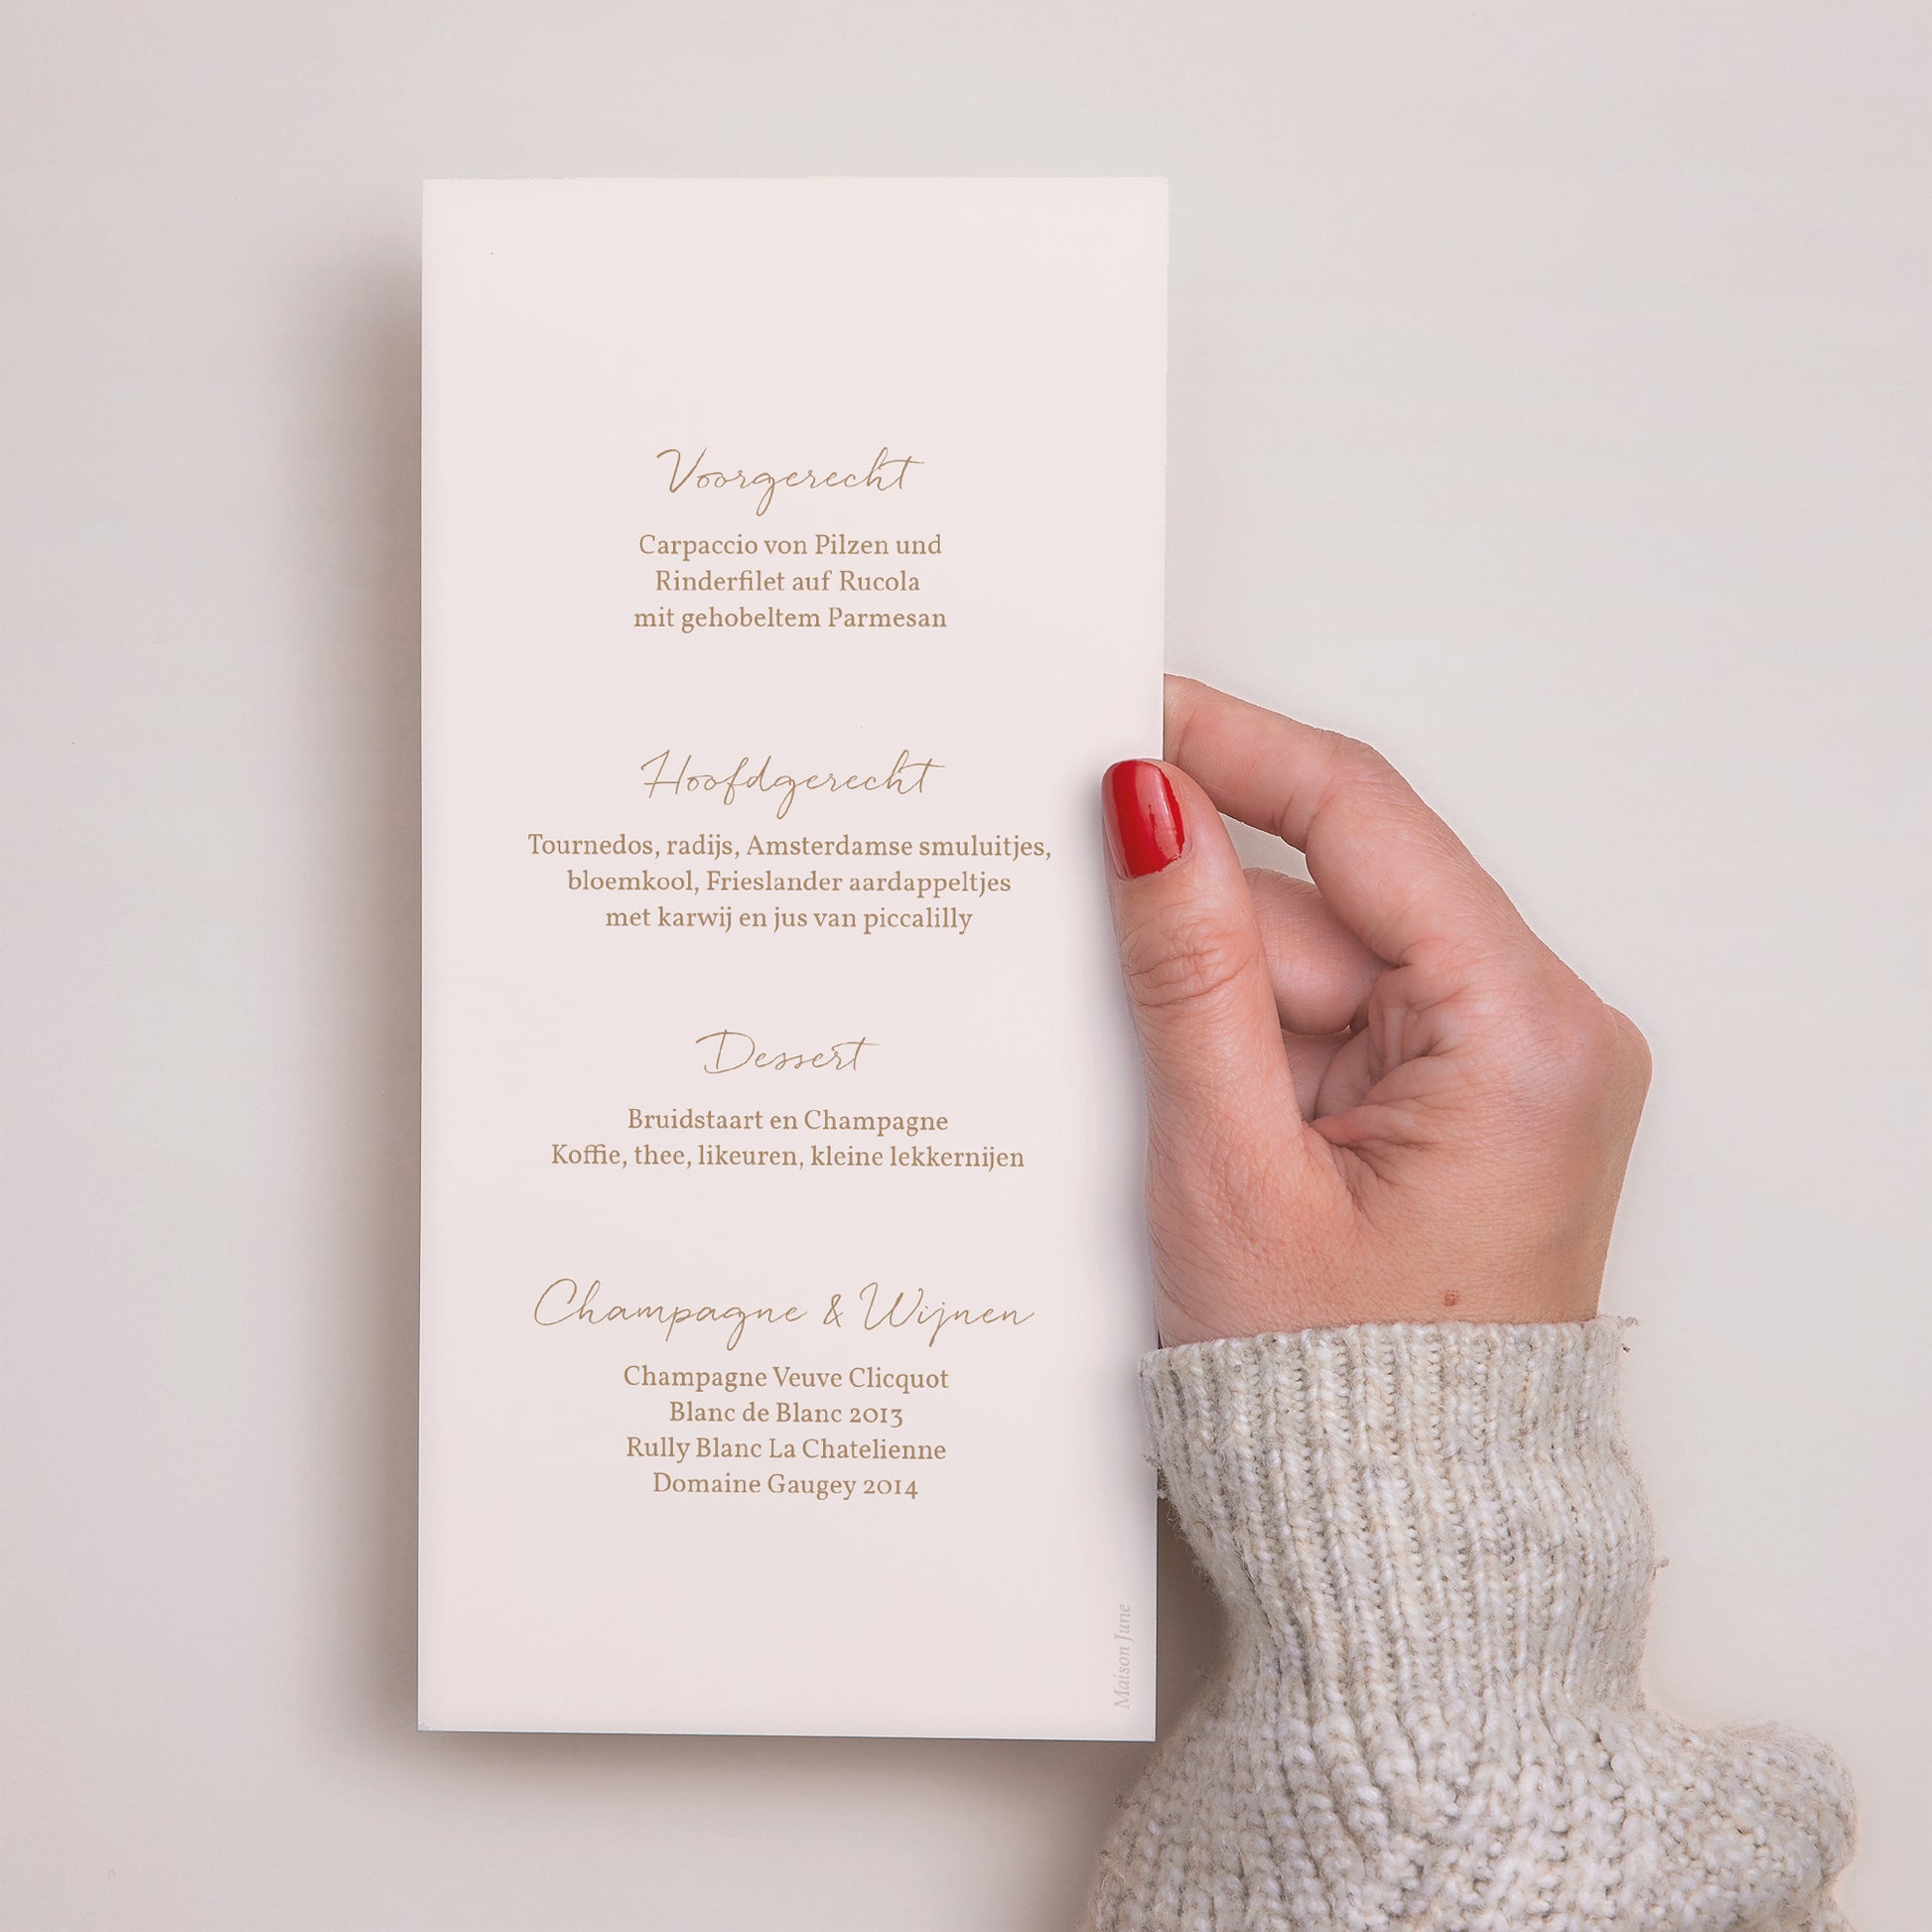 Voorgerecht
Carpaccio von Pilzen und
Rinderfilet auf Rucola
mit gehobeltem Parmesan
Hoofdgerecht
Tournedos, radijs, Amsterdamse smuluitjes,
bloemkool, Frieslander aardappeltjes
met karwij en jus van piccalilly
Dessert
Bruidstaart en Champagne
Koffie, thee, likeuren, kleine lekkernijen
Champagne & Wijnen
Champagne Veuve Clicquot
Blanc de Blanc 2013
Rully Blanc La Chatelienne
Domaine Gaugey 2014
Maison June